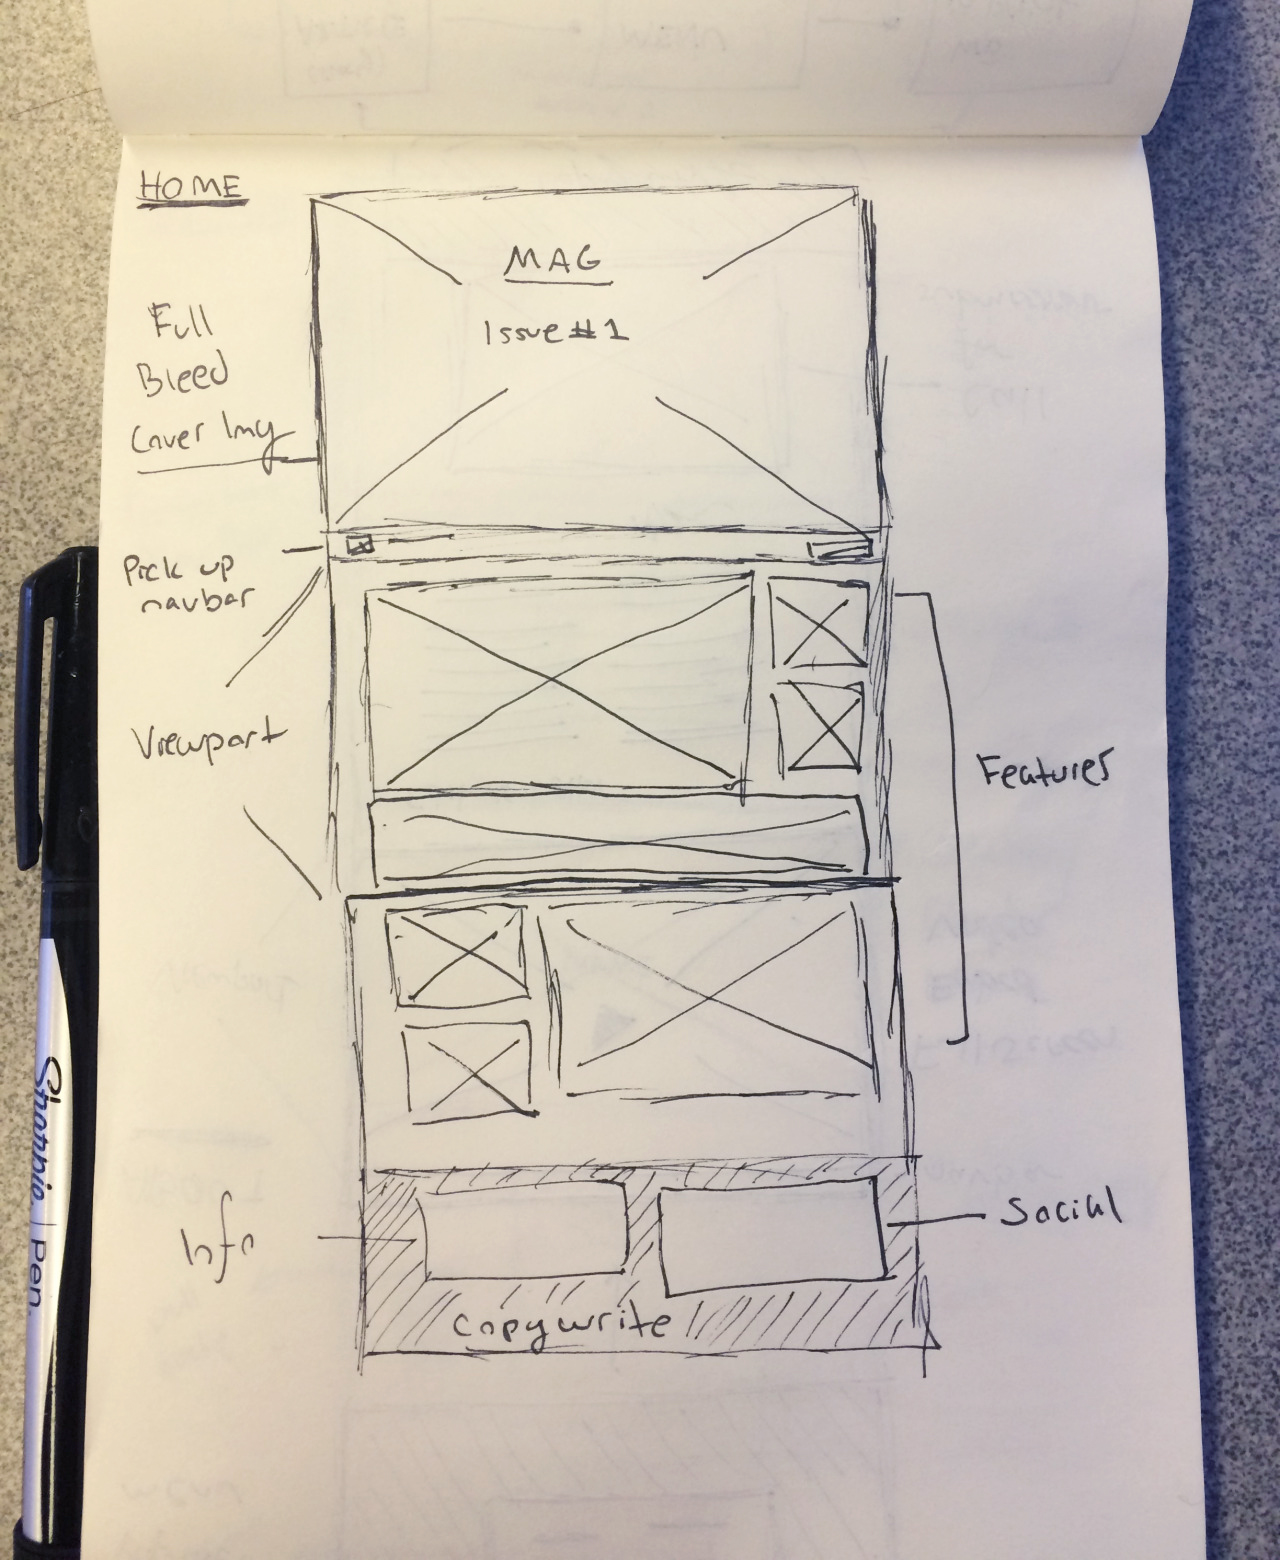 HOME
MAG
Issue #1
Full
Bleed
Cover Img
Pick up
navbar
Viewport
Features
Info
Social
Copywrite
Sharpie | Pen.